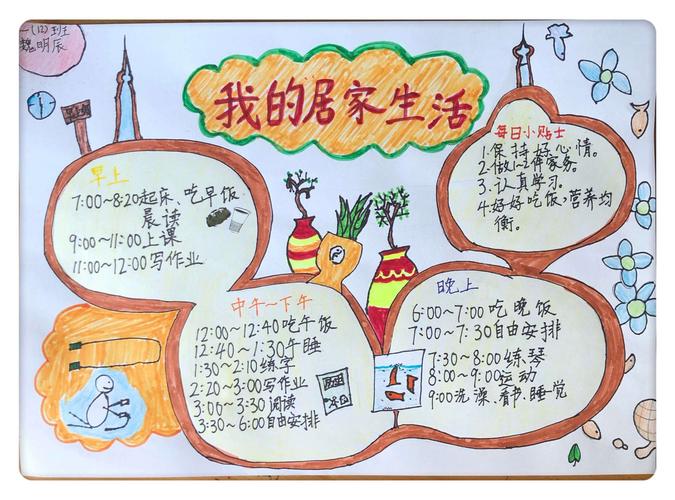 一(12)班
魏明辰
我的居家生活
早上
7:00~8:20起床、吃早饭
晨读
9:00~11:00上课
11:00~12:00写作业
每日小贴士
1.保持好心情。
2.做1~2件家务。
3.认真学习。
4.好好吃饭,营养均
衡。
中午~下午
12:00~12:40吃午饭
12:40~1:30午睡
1:30~2:10练字
2:20~3:00写作业
3:00~3:30阅读
3:30~6:00自由安排
晚上
6:00~7:00吃晚饭
7:00~7:30自由安排
7:30~8:00练琴
8:00~9:00运动
9:00洗澡、看书、睡觉